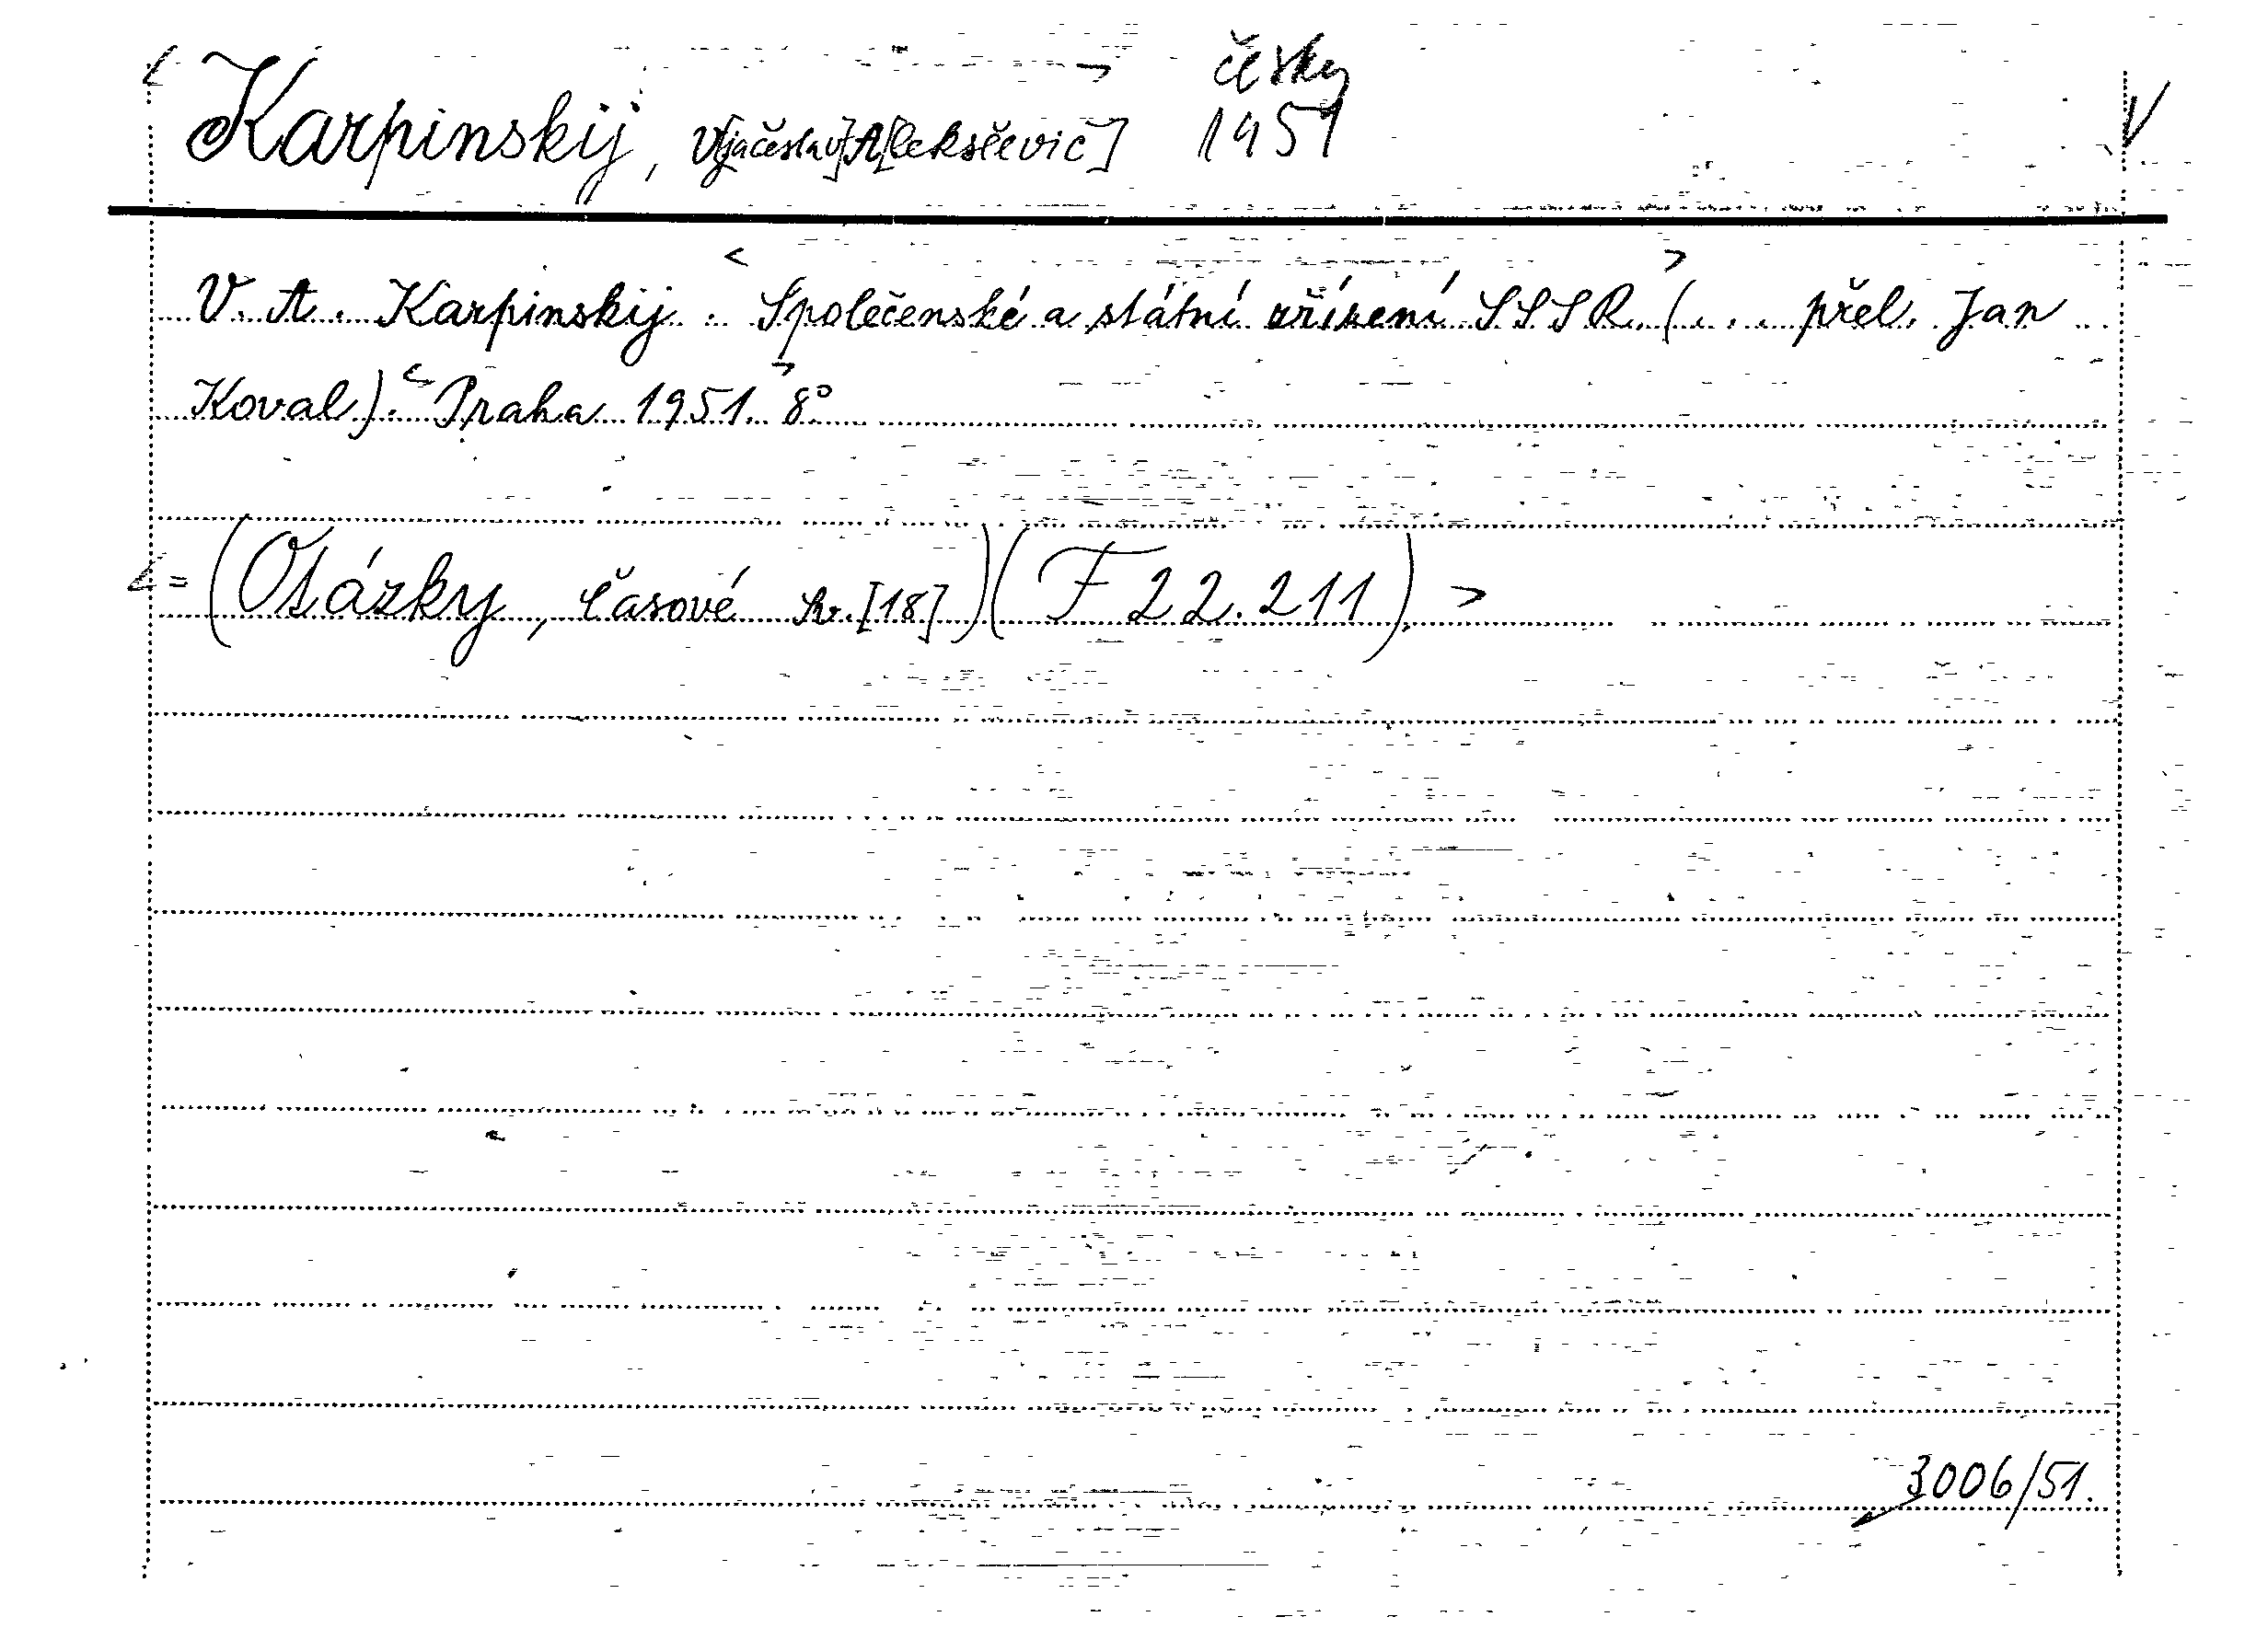 česky
Karpinskij, V[jačeslav] A[leksěevič] 1951
V. A. Karpinskij. Společenské a státní zřízení SSSR. (... přel. Jan
Koval). Praha 1951. 8°
= (Otázky, časové sv. [18]) (F 22.211).
3006/51.